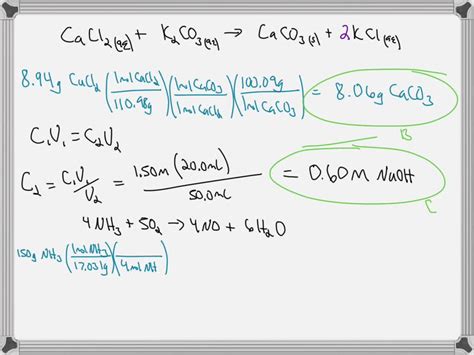 CaCl₂(aq) + K₂CO₃(aq) → CaCO₃(s) + 2KCl(aq)
8.94g CuCl₂ (1molCaCl₂/110.98g)(1molCaCO₃/1molCaCl₂)(100.09g/1molCaCO₃) = 8.06g CaCO₃
B
C₁V₁ = C₂V₂
C₂ = C₁V₁/V₂ = 1.50M (20.0mL)/50.0mL = 0.60M NaOH
C
4NH₃ + 5O₂ → 4NO + 6H₂O
150g NH₃ (1molNH₃/17.031g)( /4molNH)